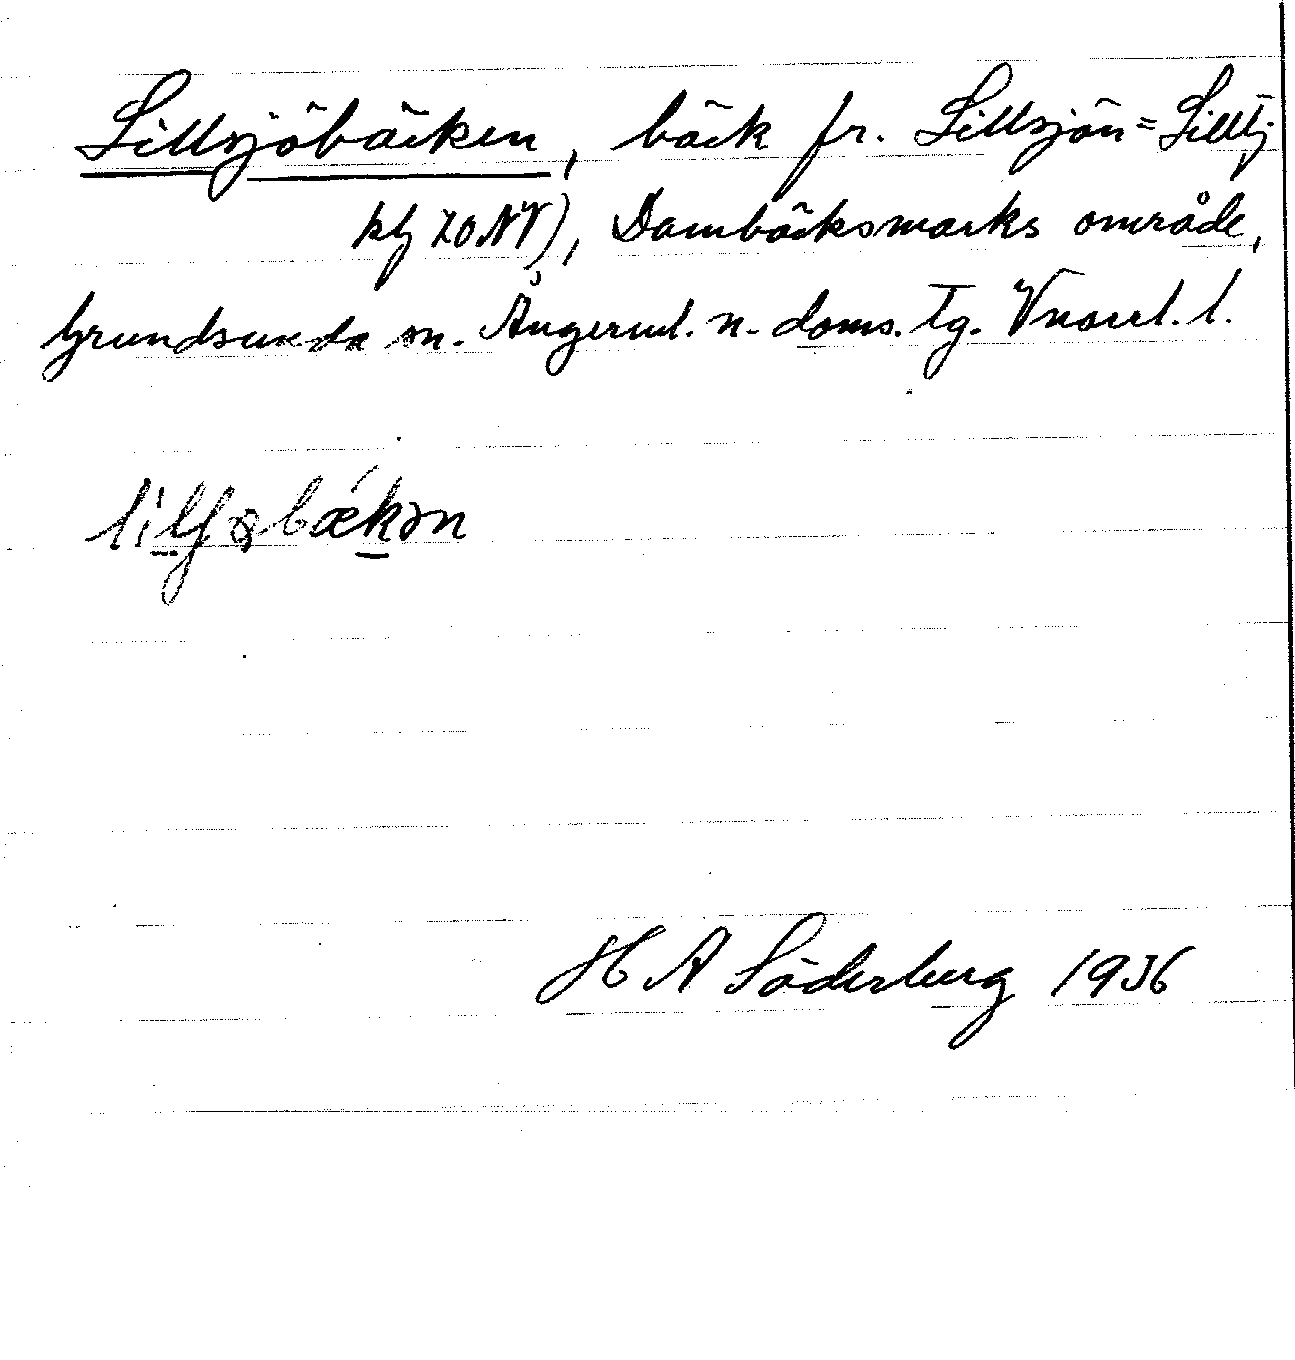 Lillsjöbäcken, bäck fr. Lillsjön = Lilltj
kbj 20 NV), Dambäcksmarks område,
Grundsunda sn. Ångerml. n. doms. tg. Vnorrl. l.
H A Söderberg 1936